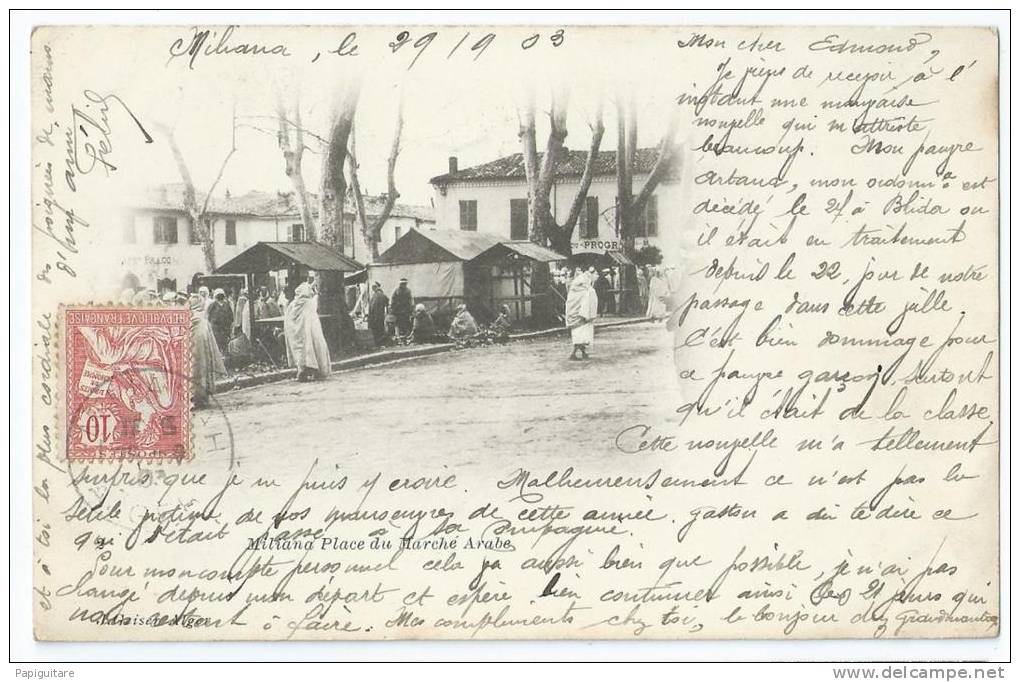 Miliana, le 29/9 03
Mon cher Edmond,
Je viens de recevoir à l'
instant une mauvaise
nouvelle qui m'attriste
beaucoup. Mon pauvre
Arbana, mon ordonn^ce est
décédé le 24 à Blida ou
il était en traitement
depuis le 22, jour de notre
passage dans cette ville.
C'est bien dommage pour
ce pauvre garçon, surtout
qu'il était de la classe
Cette nouvelle m'a tellement
surpris que je ne puis y croire. Malheureusement ce n'est pas la
seule victime de nos manœuvres de cette année. Gaston a du te dire ce
qui s'était passé à sa Compagnie.
Miliana Place du Marché Arabe
Pour mon compte personnel cela va aussi bien que possible, je n'ai pas
changé depuis mon départ et espère bien continuer ainsi les 21 jours qui
nous restent à faire. Mes compliments chez toi, le bonjour de
Geiser Alger
et à toi la plus cordiale des poignées de mains
d'un ami
Félix
REPUBLIQUE FRANÇAISE
10
POSTES
PROGR
Papiguitare
www.delcampe.net